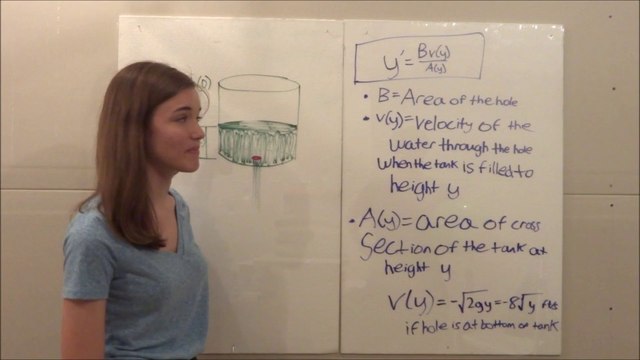 y' = Bv(y)/A(y)
• B = Area of the hole
• v(y) = velocity of the
water through the hole
when the tank is filled to
height y
• A(y) = area of cross
section of the tank at
height y
v(y) = -√2gy = -8√y ft/s
if hole is at bottom of tank